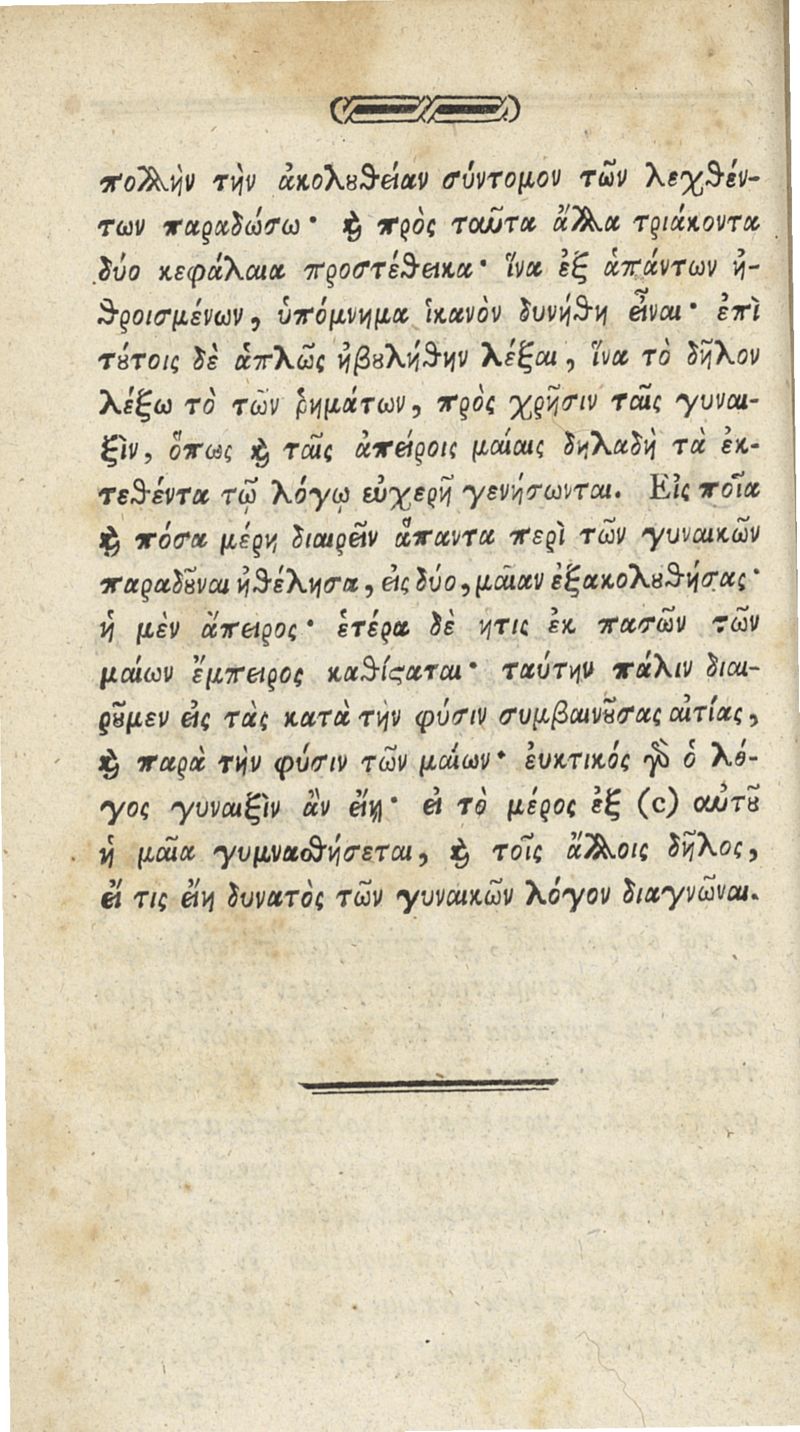 πολλὴν τὴν ἀκολȣθείαν σύντομον τῶν λεχθέν-
των παραδώσω· ϗ πρὸς ταῦτα ἄλλα τριάκοντα
δύο κεφάλαια προστέθεικα· ἵνα ἐξ ἁπάντων ἠ-
θροισμένων, ὑπόμνημα ἱκανὸν δυνήθη εἶναι· ἐπὶ
τȣ́τοις δὲ ἁπλῶς ἠβȣλήθην λέξαι, ἵνα τὸ δῆλον
λέξω τὸ τῶν ῥημάτων, πρὸς χρῆσιν ταῖς γυναι-
ξὶν, ὅπως ϗ ταῖς ἀπείροις μαίαις δηλαδὴ τὰ ἐκ-
τεθέντα τῷ λόγῳ εὐχερῆ γενήσωνται. Εἰς ποῖα
ϗ πόσα μέρη διαιρεῖν ἅπαντα περὶ τῶν γυναικῶν
παραδȣ͂ναι ἠθέλησα, εἰς δύο, μαῖαν ἐξακολȣθήσας·
ἡ μὲν ἄπειρος· ἑτέρα δὲ ητις ἐκ πασῶν τῶν
μαίων ἔμπειρος καθίϛαται· ταύτην πάλιν διαι-
ρȣ͂μεν εἰς τὰς κατὰ τὴν φύσιν συμβαινȣ́σας αἰτίας,
ϗ παρὰ τὴν φύσιν τῶν μαίων· ἐυκτικός γὰρ ὁ λό-
γος γυναιξὶν ἂν εἴη· εἰ τὸ μέρος ἐξ (c) αὐτȣ͂
ἡ μαῖα γυμνασθήσεται, ϗ τοῖς ἄλλοις δῆλος,
εἴ τις εἴη δυνατὸς τῶν γυναικῶν λόγον διαγνῶναι.